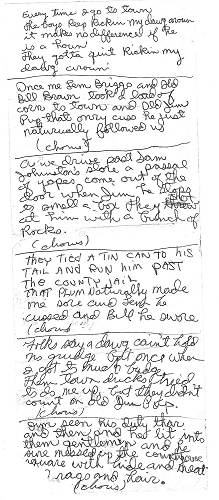 Every time I go to town
The boys keep Kickin my dawg aroun
it makes no difference if he
is a houn
They gotta quit Kickin my
dawg aroun
Once me Lem Briggs and Old
Bill Brown took a load of
corn to town and Old Jim
Pup that onry cuss he just
naturually followed us
(chorus)
As we drive past Sam
Johnstons store a passal
of yapes come out of the
door when Jim he stops
to smell a box they
at him with a bunch of
Rocks.
(chorus)
THEY TIED A TIN CAN TO HIS
TAIL AND RUN HIM PAST
THE COUNTY JAIL
THAT PLUM Naturally made
me sore and Lem he
cussed and Bill he swore
(chorus)
Folks say a dawg caint hold
no grudge but once when
I got to much budge
Them town ducks tried
to do me up, but they didn't
count on old Jim Pup.
(chorus)
Jim seen his duty thar
and then and he lit into
them gentlemen and he
sure messed up the courthouse
square with hide and meat
rags and hair.
(chorus)